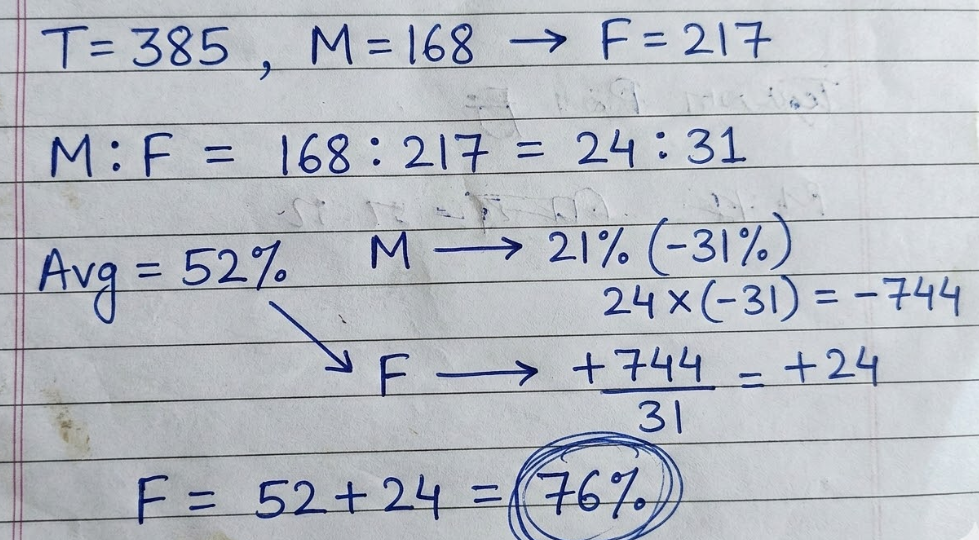 T = 385 , M = 168 → F = 217
M : F = 168 : 217 = 24 : 31
Avg = 52% M → 21% (-31%)
24 × (-31) = -744
F → +744/31 = +24
F = 52 + 24 = 76%